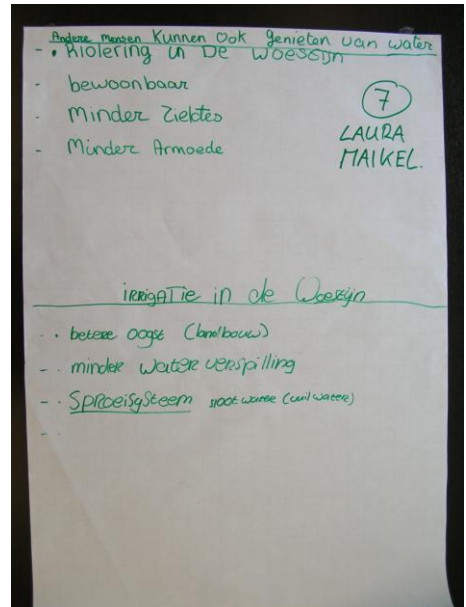 Andere mensen kunnen ook genieten van water
- • Riolering in De woestijn
- bewoonbaar
7
- Minder Ziektes
LAURA
- Minder Armoede
MAIKEL.
irrigatie in de Woestijn
- • betere oogst (landbouw)
- • minder water verspilling
- • Sproeisysteem sloot water (vuil water)
- •